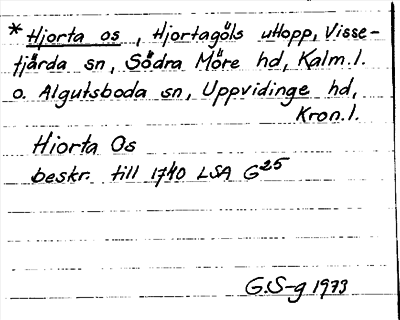 * Hjorta os, Hjortagöls utlopp, Visse-
fjärda sn, Södra Möre hd, Kalm.l.
o. Algutsboda sn, Uppvidinge hd,
Kron.l.
Hiorta Os
beskr. till 1740 LSA G25
G.S-g 1973